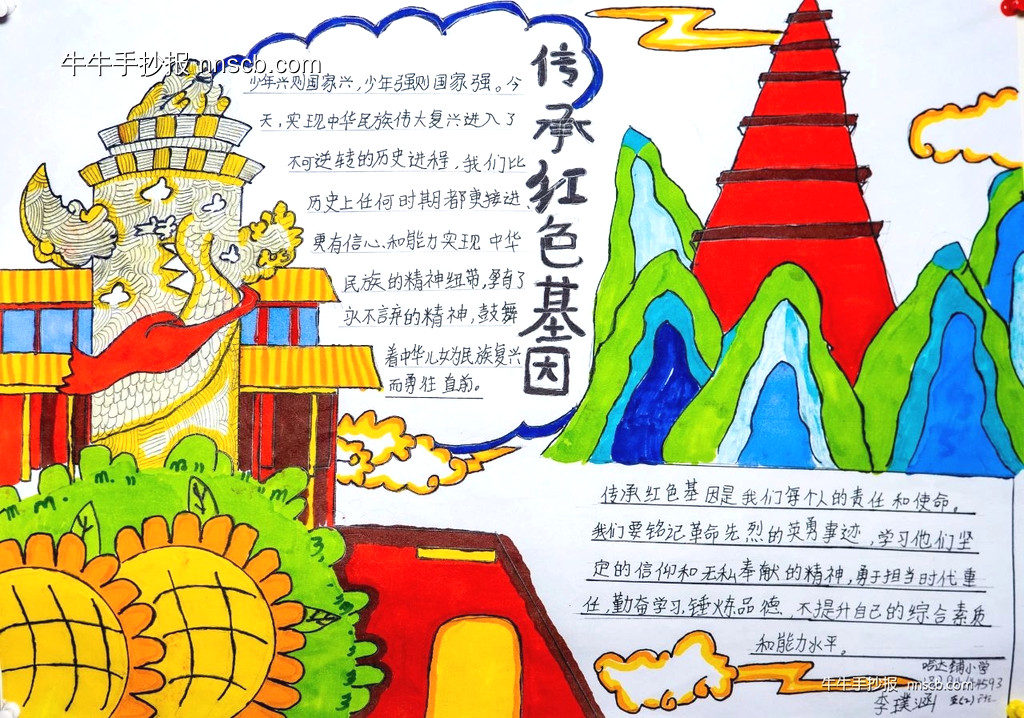 牛牛手抄报 nnscb.com
传承红色基因
少年兴则国家兴，少年强则国家强。今
天，实现中华民族伟大复兴进入了
不可逆转的历史进程，我们比
历史上任何时期都更接进、
更有信心、和能力实现 中华
民族的精神纽带，孕育了
永不言弃的精神，鼓舞
着中华儿女为民族复兴
而勇往直前。
传承红色基因是我们每个人的责任和使命。
我们要铭记革命先烈的英勇事迹，学习他们坚
定的信仰和无私奉献的精神，勇于担当时代重
任，勤奋学习，锤炼品德、不提升自己的综合素质
和能力水平。
哈达铺小学
牛牛手抄报 nnscb.com